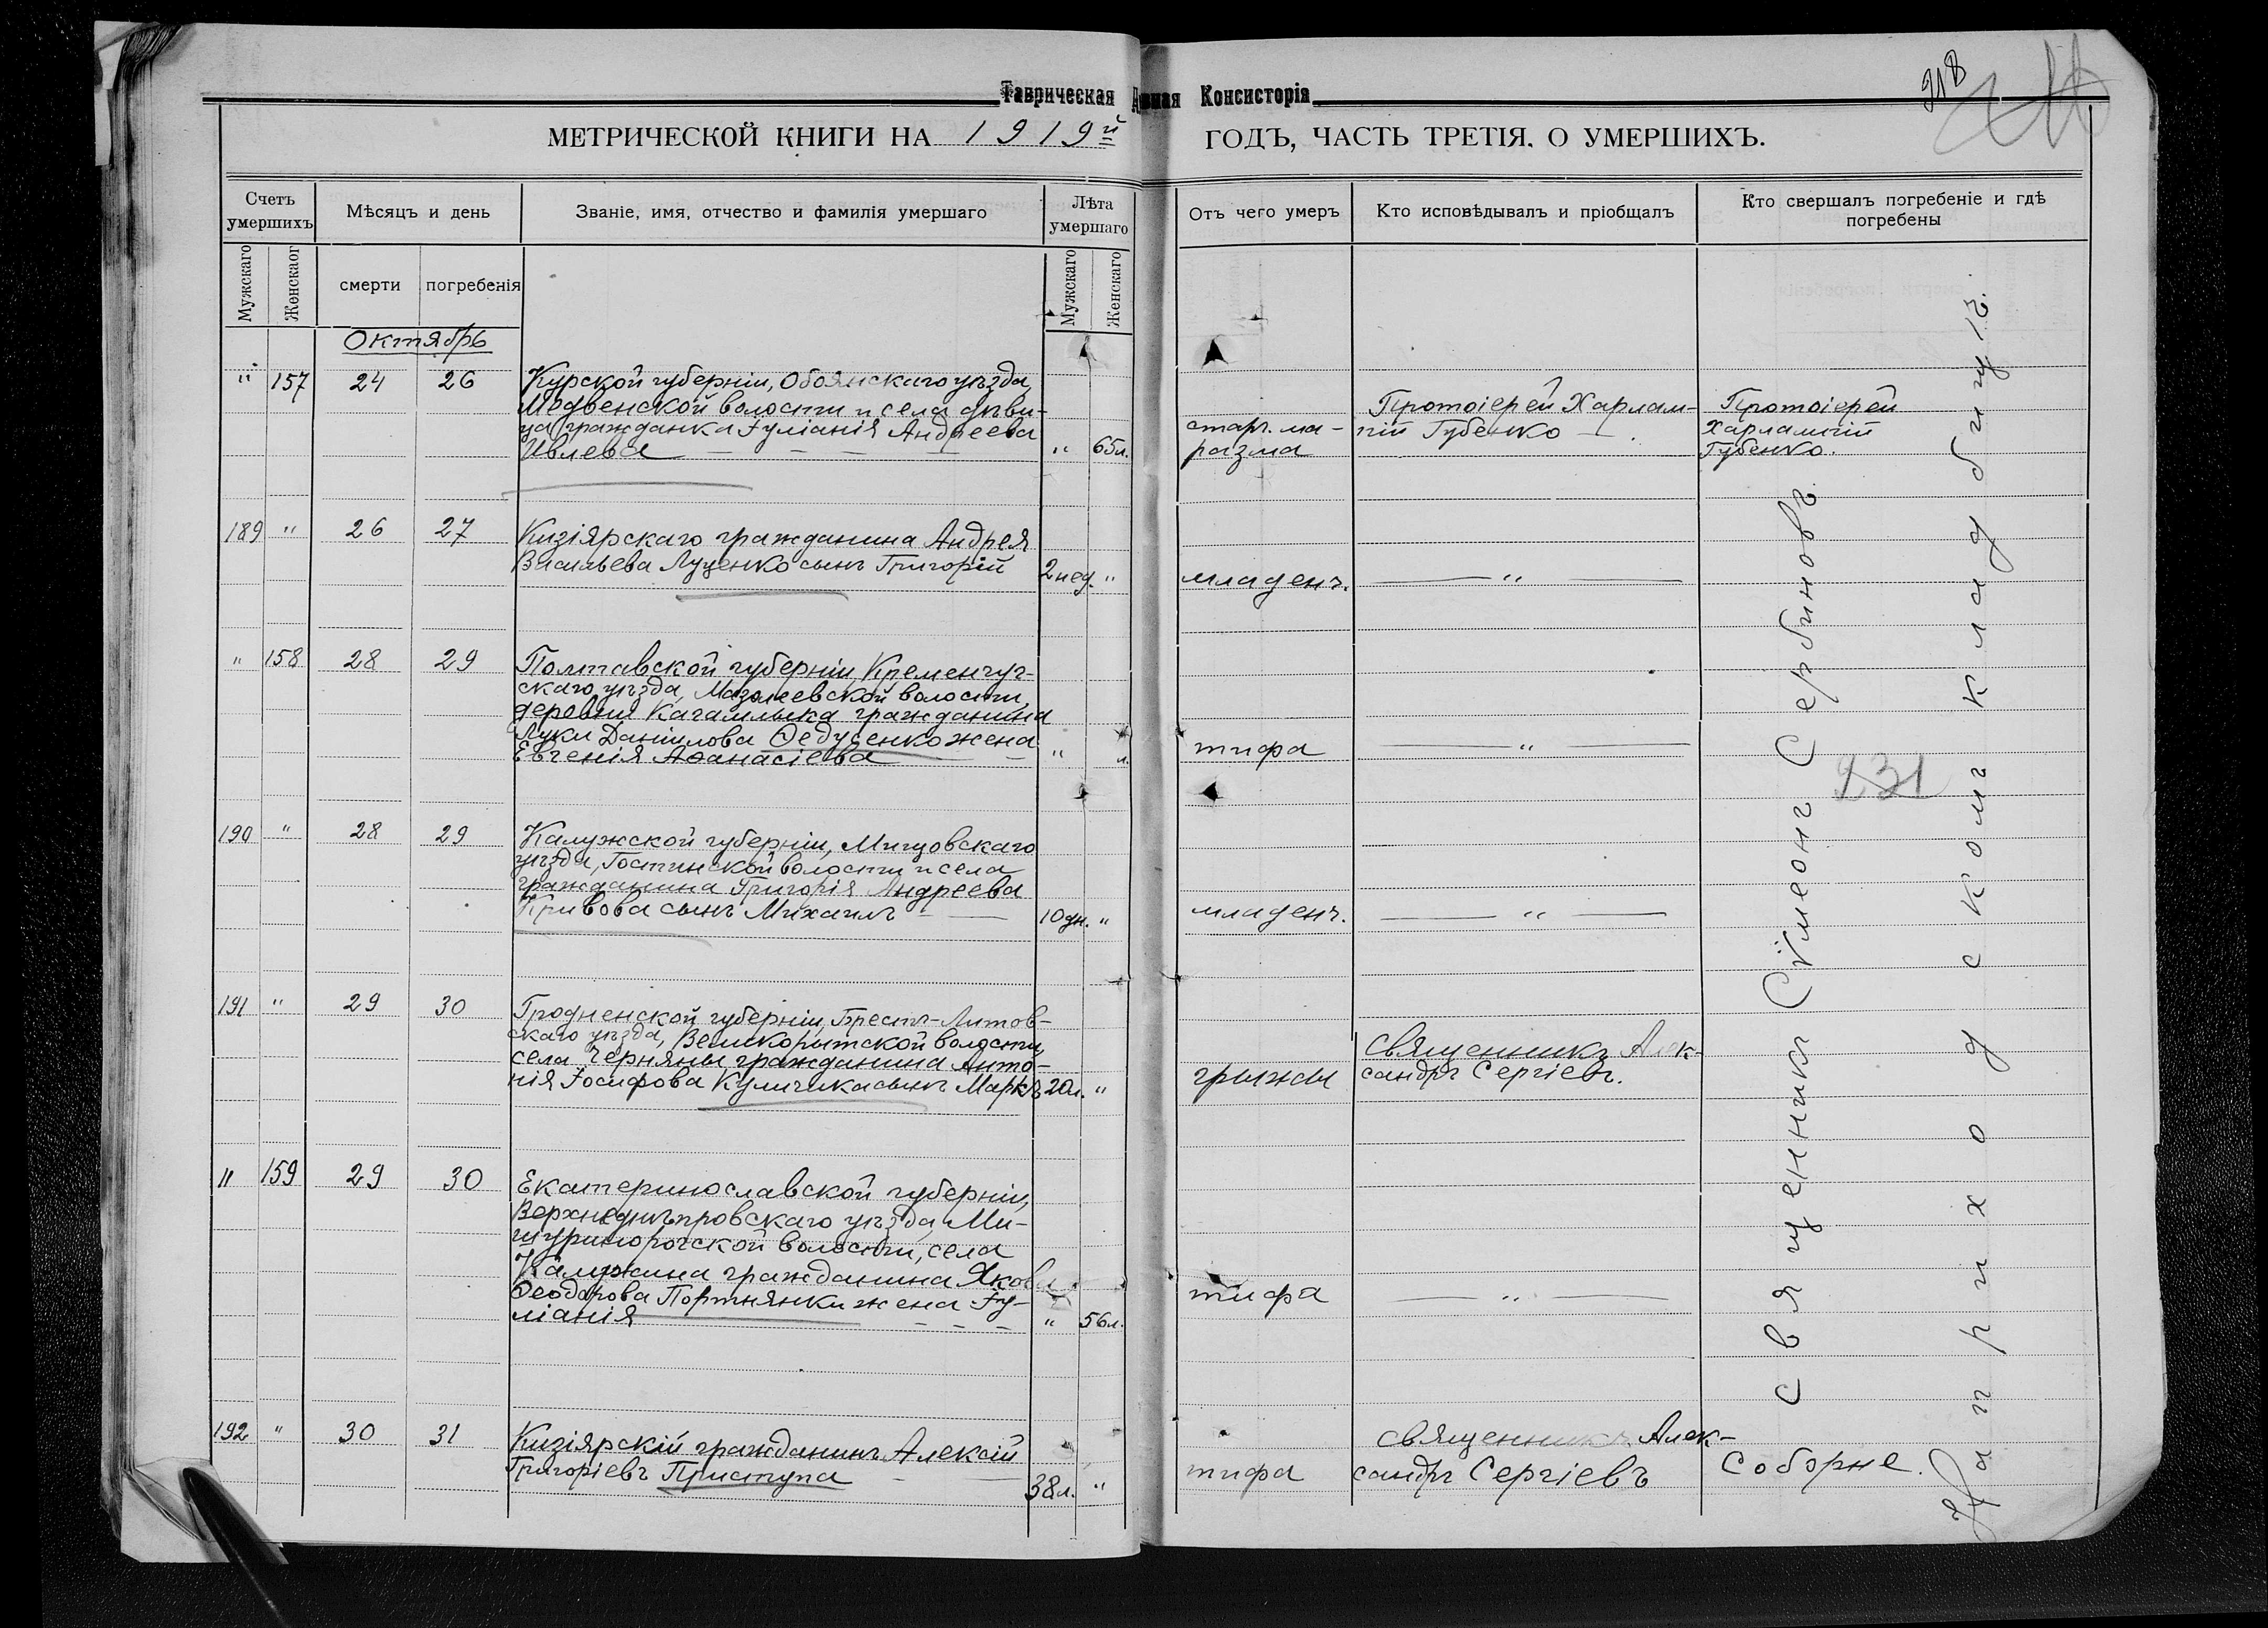 Таврическая Духная Консисторія
318
МЕТРИЧЕСКОЙ КНИГИ НА 1919й ГОДЪ, ЧАСТЬ ТРЕТІЯ. О УМЕРШИХЪ.
Счетъ умершихъ
Мѣсяцъ и день
Званіе, имя, отчество и фамилія умершаго
Лѣта умершаго
Отъ чего умеръ
Кто исповѣдывалъ и пріобщалъ
Кто свершалъ погребеніе и гдѣ погребены
Мужскаго
Женскаог
смерти
погребенія
Мужскаго
Женскаго
Октябрь
" 157 24 26 Курской губерніи, Обоянскаго уѣзда,
Медвенской волости и села дѣви-
ца гражданка Іуліанія Андреева
Ивлева " 65л.
стар. ма-
разма
Протоіерей Харлам-
пій Губенко
Протоіерей
Харлампій
Губенко.
189 " 26 27 Кизіярскаго гражданина Андрея
Васильева Луценко сынъ Григорій 2 нед. "
младенч. "
" 158 28 29 Полтавской губерніи, Кременчуг-
скаго уѣзда, волости,
деревни Кагамлыка гражданина
Луки Даніилова Ѳедусенко жена
Евгенія Аѳанасіева " л.
тифа "
190 " 28 29 Калужской губерніи, Мищовскаго
уѣзда, Гостинской волости и села
гражданина Григорія Андреева
Кривова сынъ Михаилъ 10 дн. "
младенч. "
191 " 29 30 Гродненской губерніи, Брестъ-Литов-
скаго уѣзда, Великорытской волости,
села Черняны гражданина Анто-
нія Іосифова Куличика сынъ Маркъ 20л. "
грыжи
Священникъ Алек-
сандръ Сергіевъ.
" 159 29 30 Екатеринославской губерніи,
Верхнеднѣпровскаго уѣзда, Ми-
шуринорогской волости, села
Калужина гражданина Якова
Ѳеодорова Портнянки жена Іу-
ліанія " 56л.
тифа "
192 " 30 31 Кизіярскій гражданинъ Алексій
Григоріевъ Приступа 38л. "
тифа
Священникъ Алек-
сандръ Сергіевъ
Соборне.
Священникъ Сѵмеонъ Сербиновъ
231
На приходскомъ кладбищѣ.